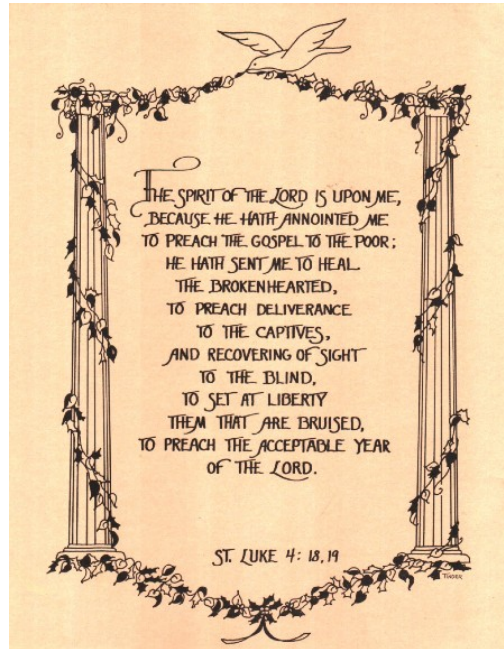 THE SPIRIT OF THE LORD IS UPON ME,
BECAUSE HE HATH ANNOINTED ME
TO PREACH THE GOSPEL TO THE POOR;
HE HATH SENT ME TO HEAL
THE BROKENHEARTED,
TO PREACH DELIVERANCE
TO THE CAPTIVES,
AND RECOVERING OF SIGHT
TO THE BLIND,
TO SET AT LIBERTY
THEM THAT ARE BRUISED,
TO PREACH THE ACCEPTABLE YEAR
OF THE LORD.
ST. LUKE 4: 18,19